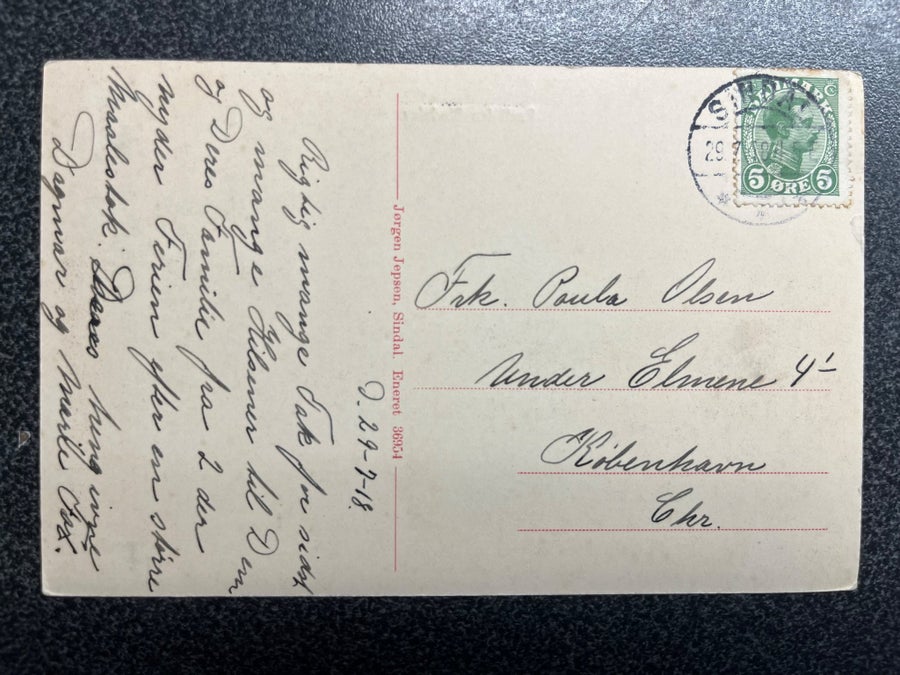 D. 29-7-18.
Rigtig mange Tak for sidst
og mange Hilsener til Dem
og Deres Familie fra 2 der
nyder Ferien efter en större
Deres hengivne
Dagmar og Marie Fox.
Jørgen Jepsen, Sindal. Eneret 36954
SINDAL
29.
DANMARK
5 ØRE 5
Frk. Paula Olsen
Under Elmene 4'
København
Chr.